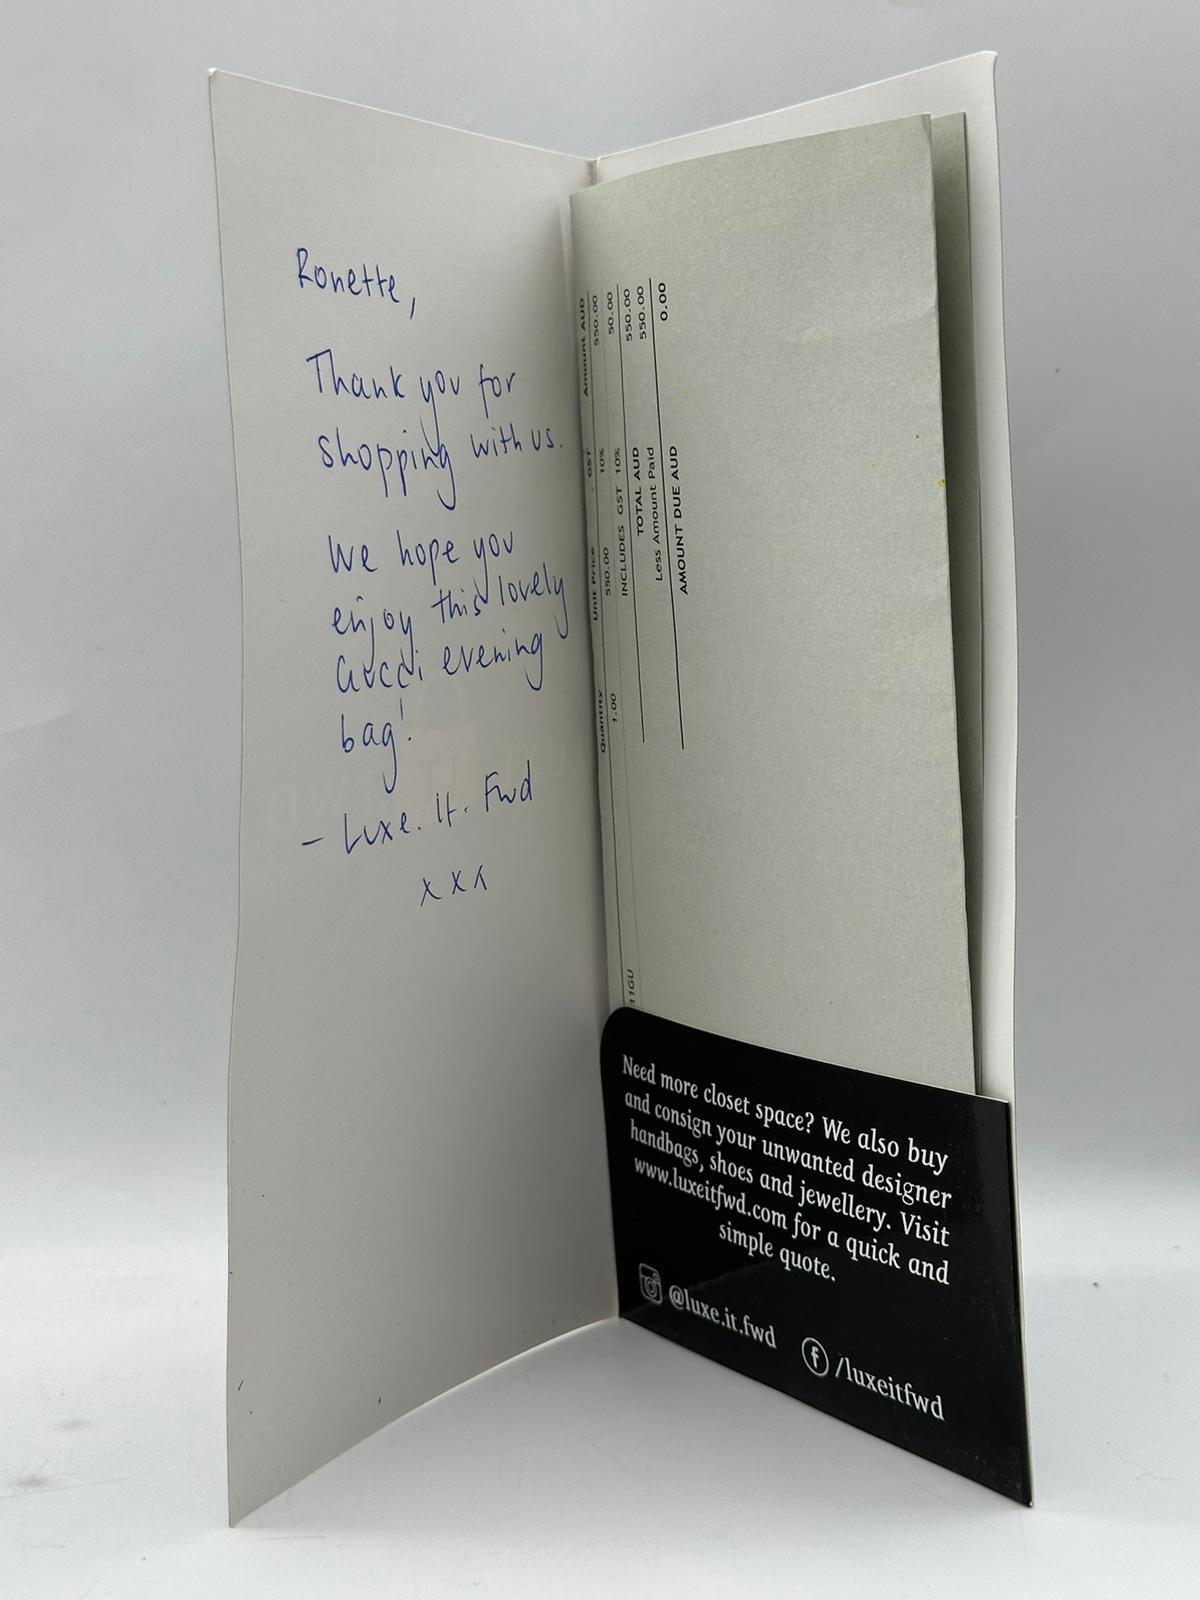 Ronette,
Thank you for
shopping with us.
We hope you
enjoy this lovely
Gucci evening
bag!
- Luxe. It. Fwd
x x x
Quantity Unit Price GST Amount AUD
1.00 550.00 10% 550.00
INCLUDES GST 10% 50.00
TOTAL AUD 550.00
Less Amount Paid 550.00
AMOUNT DUE AUD 0.00
11GU
Need more closet space? We also buy
and consign your unwanted designer
handbags, shoes and jewellery. Visit
www.luxeitfwd.com for a quick and
simple quote.
@luxe.it.fwd
/luxeitfwd